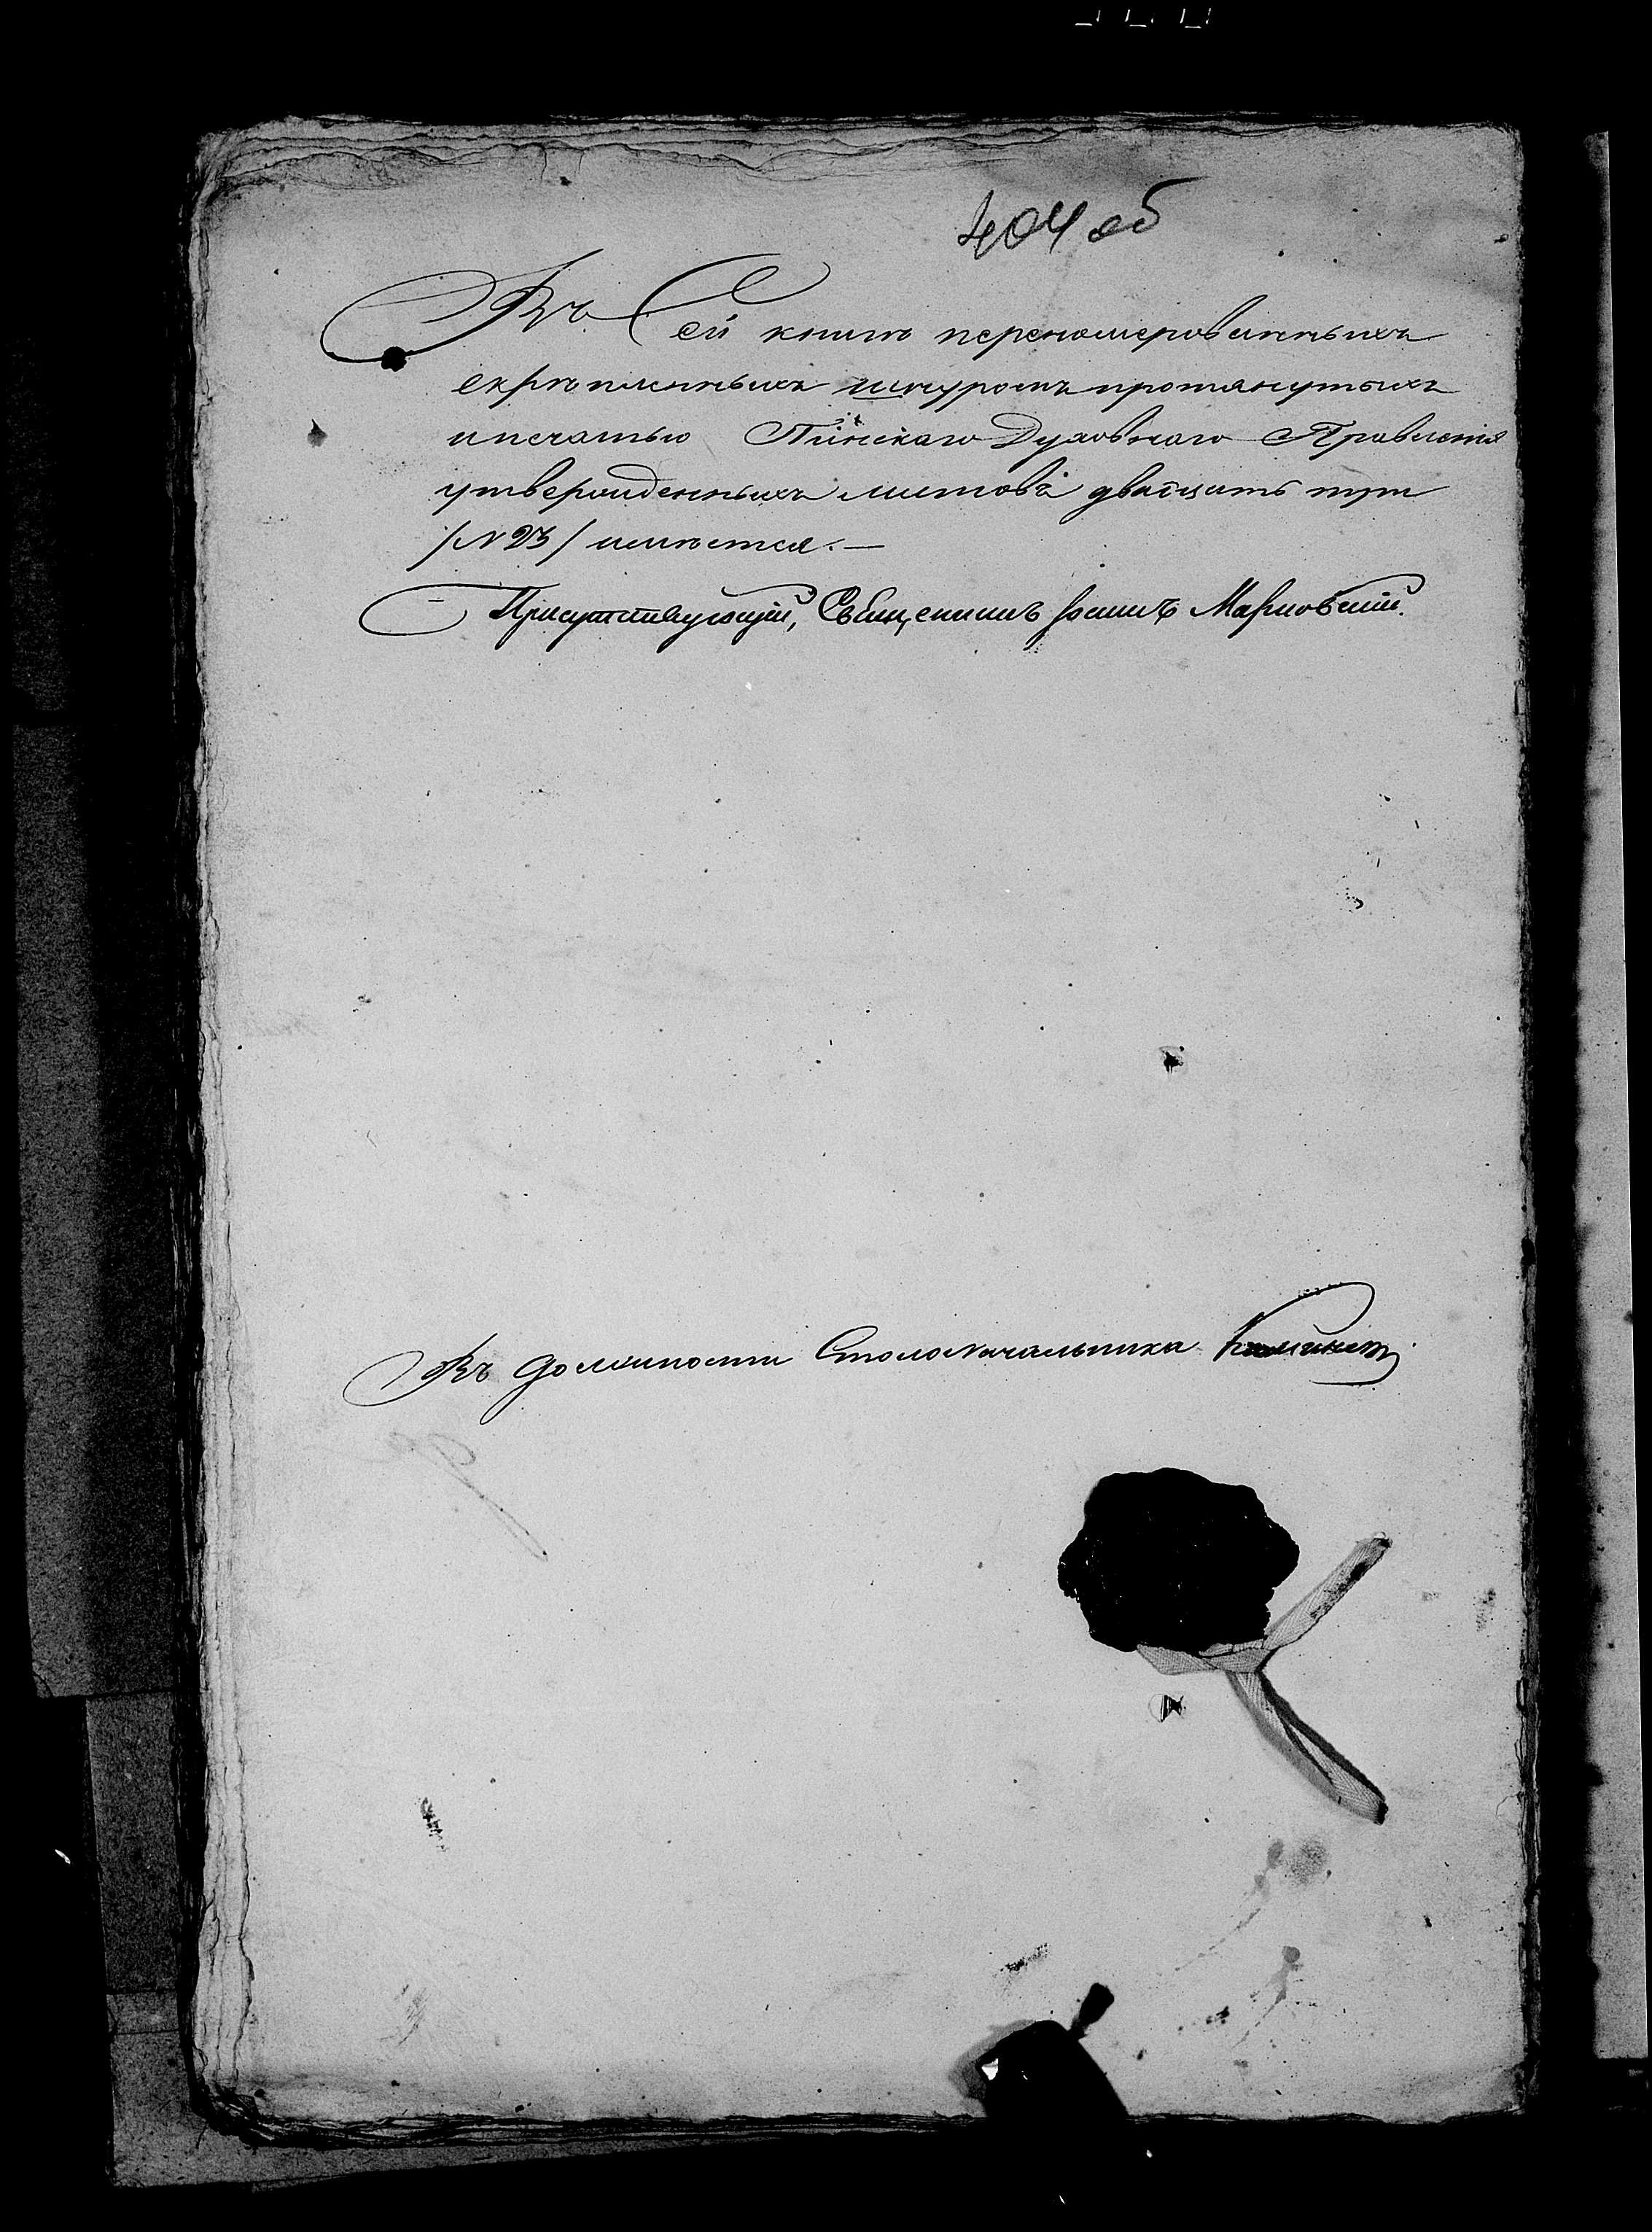 404 об
Въ Сей книгѣ перенумерованныхъ
скрѣпленныхъ шнуромъ протянутыхъ
и печатью Пинскаго Духовнаго Правленія
утвержденныхъ листовъ двацать три
/N 23/ имѣется.—
Присутствующій, Священникъ Іоаннъ Марковскій.
Въ должности Столоначальника